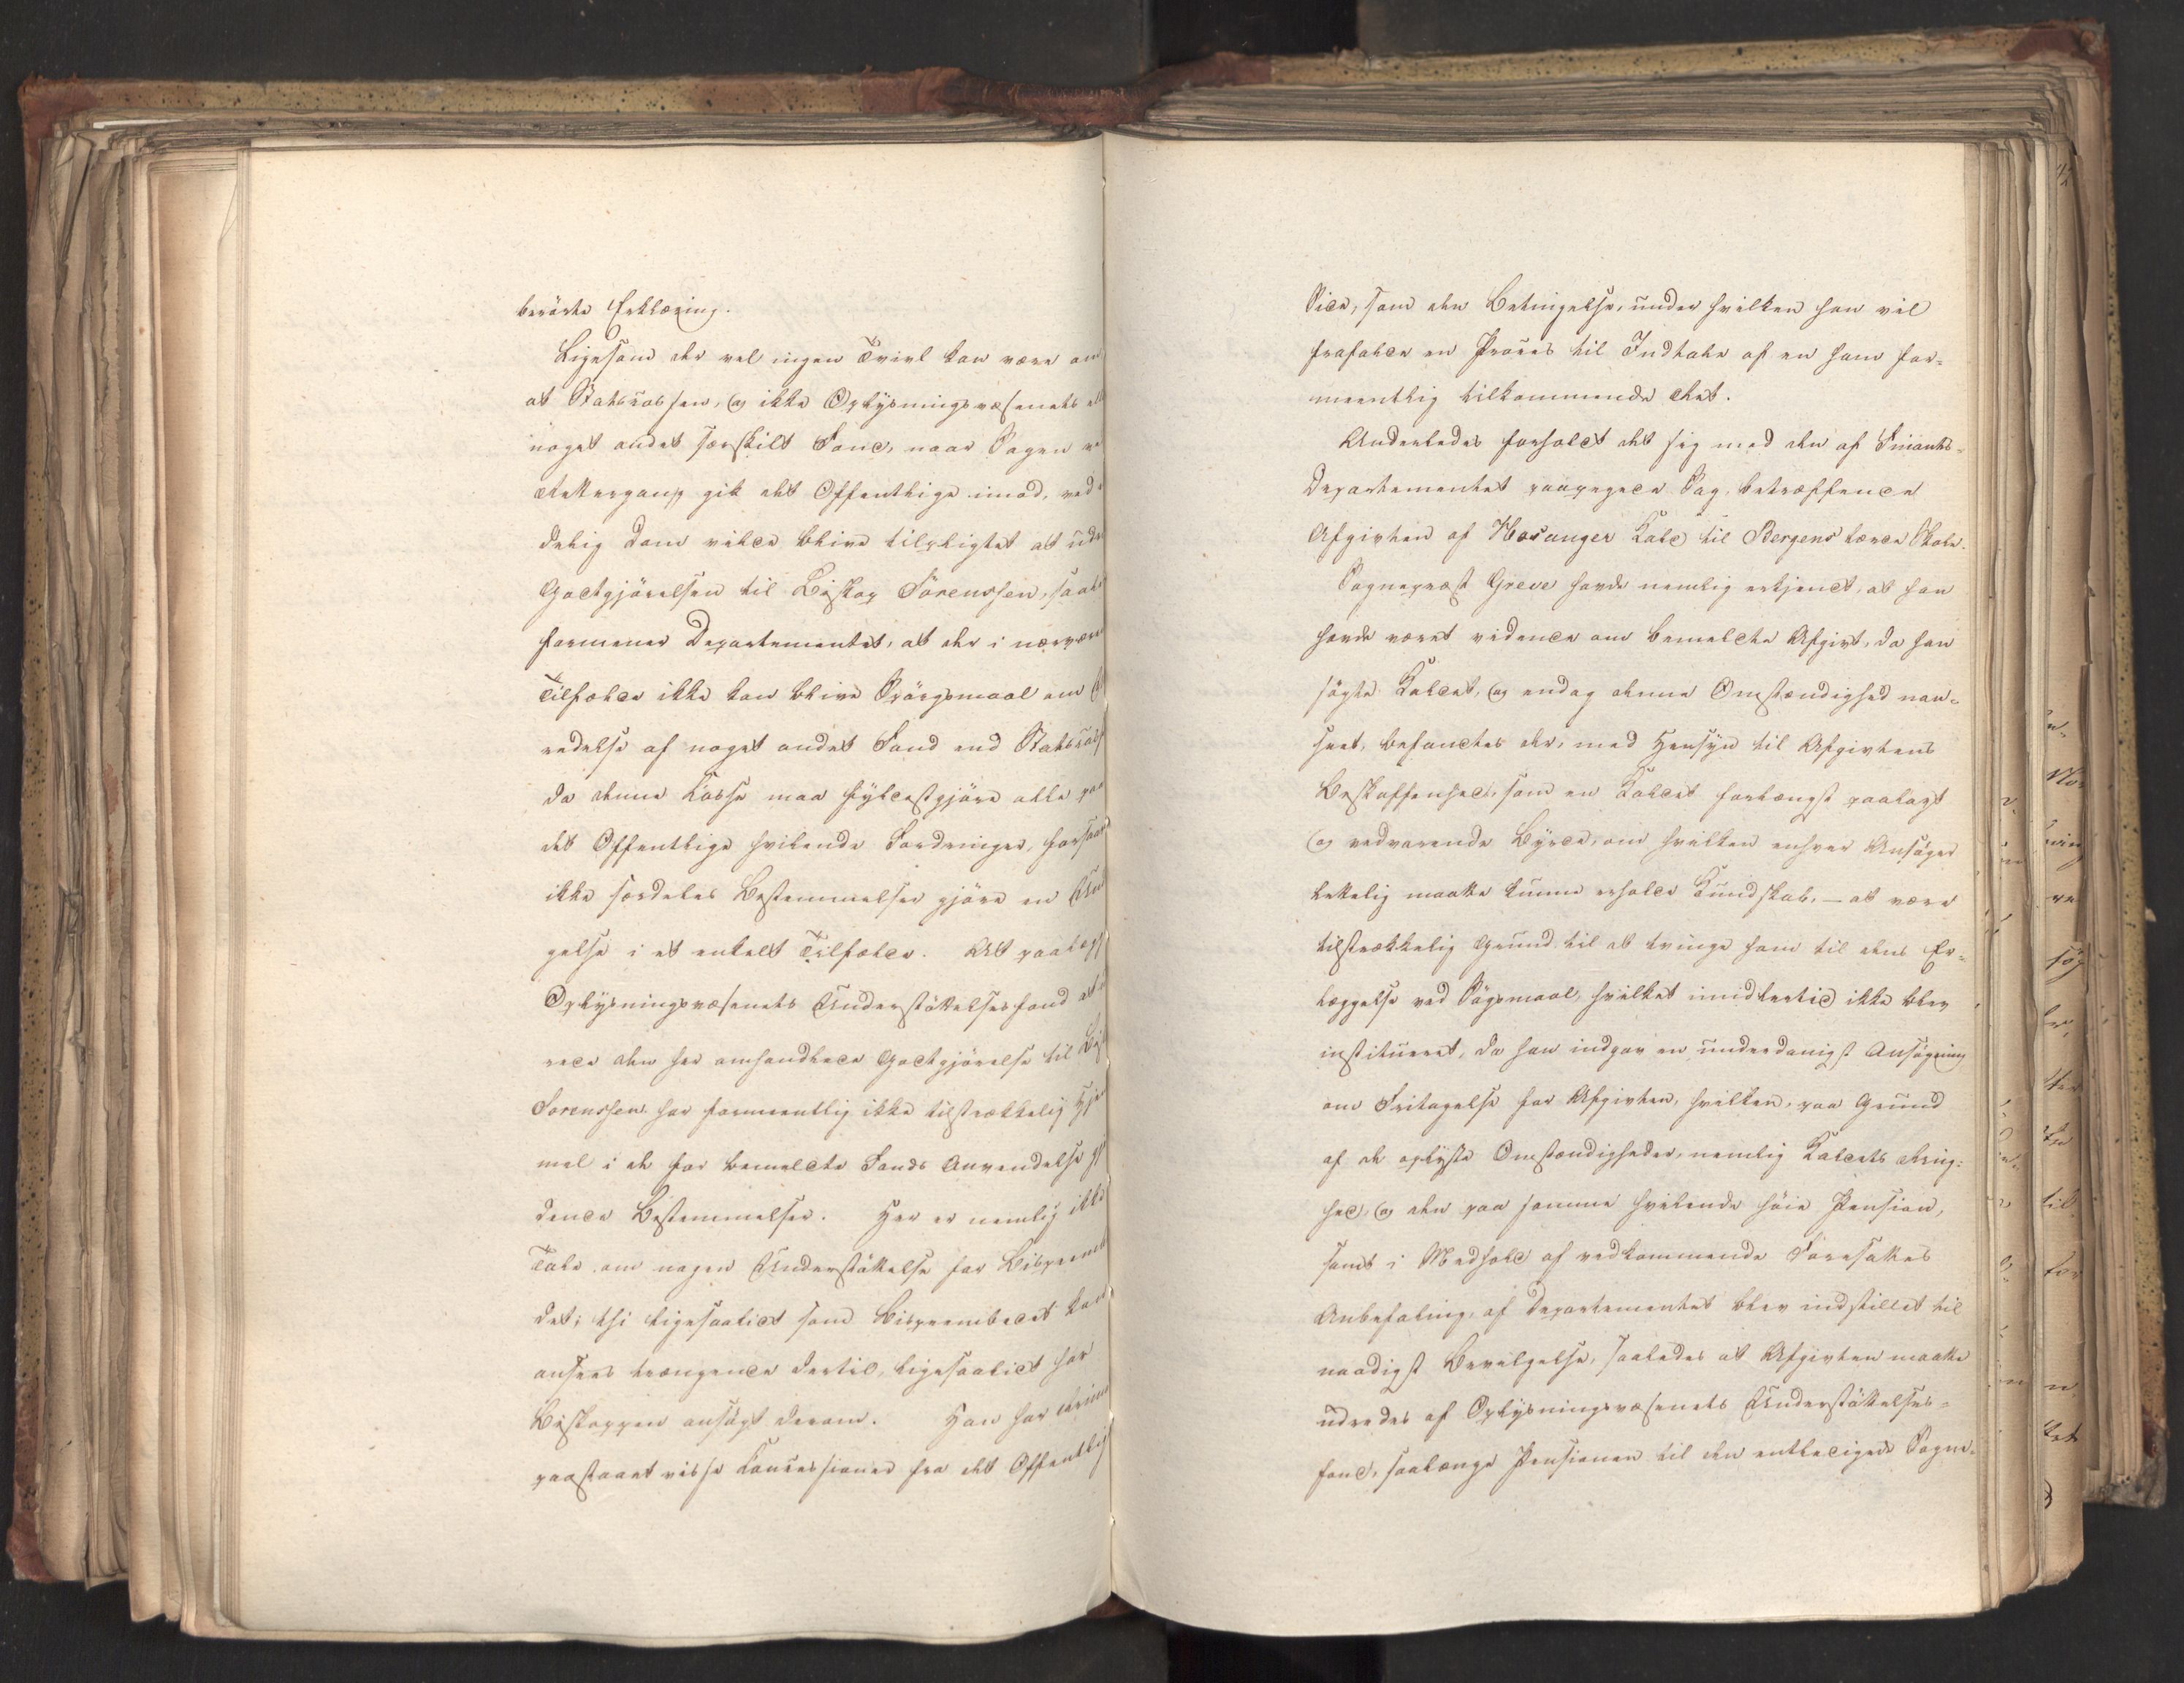 berörte Erklæring.
Ligesom der vel ingen Tvivl kan være om
at Statscassen, og ikke Oplysningsvæsenets ell
noget andet særskilt Fond, naar Sagen ve
Rettergang gik det Offentlige imod, ved
delig Dom vilde blive tilpligtet at ude
Godtgjörelsen til Biskop Sörenssen, saale
formener Departementet, at der i nærvære
Tilfælde ikke kan blive Spörgsmaal om
redelse af noget andet Fond end Statscass
da denne Kasse maa fyldestgjöre alle paa
det Offentlige hvilende Fordringer, forsaa
ikke særdeles Bestemmelser gjöre en Und
gelse i et enkelt Tilfælde. At paalægg
Oplysningsvæsenets Understöttelsesfond at
rede den her omhandlede Godtgjörelse til Bisk
Sorenssen har formeentlig ikke tilstrækkelig Hjem
mel i de for bemeldte Fonds Anvendelse gj
dende Bestemmelser. Her er nemlig ikke
Tale om nogen Understöttelse for Bispeemb
det; thi ligesaalidt som Bispeembedet kan
ansees trængende dertil, ligesaalidt har
Biskoppen ansögt derom. Han har
paastaaet visse Koncessioner fra det Offentlig
Side, som den Betingelse, under hvilken han vil
frafalde en Proces til Indtale af en ham for-
meentlig tilkommende Ret.
Anderledes forholdt det sig med den af Finants-
Departementet paapegede Sag, betræffende
Afgivten af Hosanger Kald til Bergens lærde Skole.
Sognepræst Greve havde nemlig erkjendt, at han
havde været vidende om bemeldte Afgivt, da han
sögte Kaldet, og endog denne Omstændighed uan-
seet, befandtes der, med Hensyn til Afgivtens
Beskaffenhed, som en Kaldet forlængst paalagt
og vedvarende Byrde, om hvilken enhver Ansöger
lettelig maatte kunne erholde Kundskab, – at være
tilstrækkelig Grund til at tvinge ham til dens Er-
læggelse ved Sögsmaal, hvilket imidlertid ikke blev
institueret, da han indgav en underdanigst Ansögning
om Fritagelse for Afgivten, hvilken, paa Grund
af de oplyste Omstændigheder, nemlig Kaldets Ring-
hed, og den paa samme hvilende höie Pension,
samt i Medhold af vedkommende Foresattes
Anbefaling, af Departementet blev indstillet til
naadigst Bevilgelse, saaledes at Afgivten maatte
udredes af Oplysningsvæsenets Understöttelses-
fond, saalænge Pensionen til den entledigede Sogne-